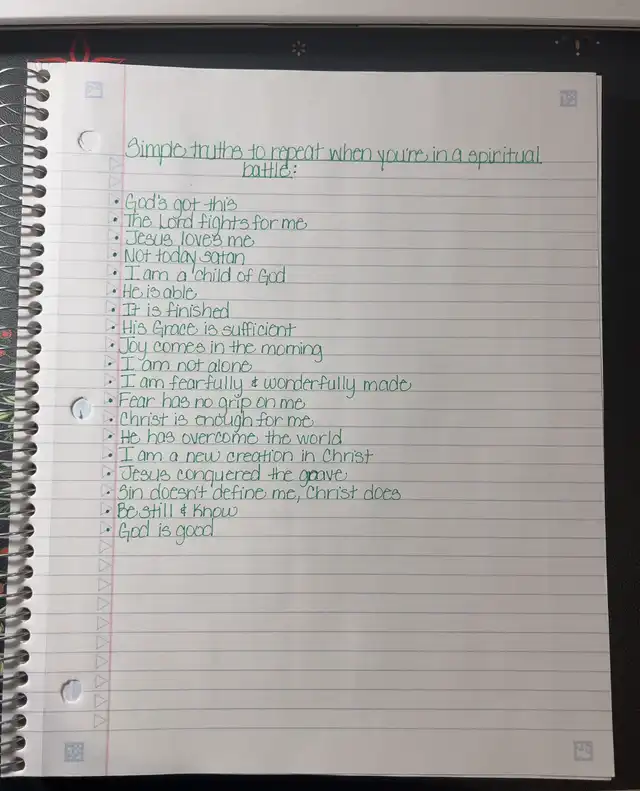 Simple truths to repeat when you're in a spiritual
battle:
• God's got this
• The Lord fights for me
• Jesus loves me
• Not today satan
• I am a child of God
• He is able
• It is finished
• His Grace is sufficient
• Joy comes in the morning
• I am not alone
• I am fearfully & wonderfully made
• Fear has no grip on me
• Christ is enough for me
• He has overcome the world
• I am a new creation in Christ
• Jesus conquered the grave
• Sin doesn't define me, Christ does
• Be still & know
• God is good